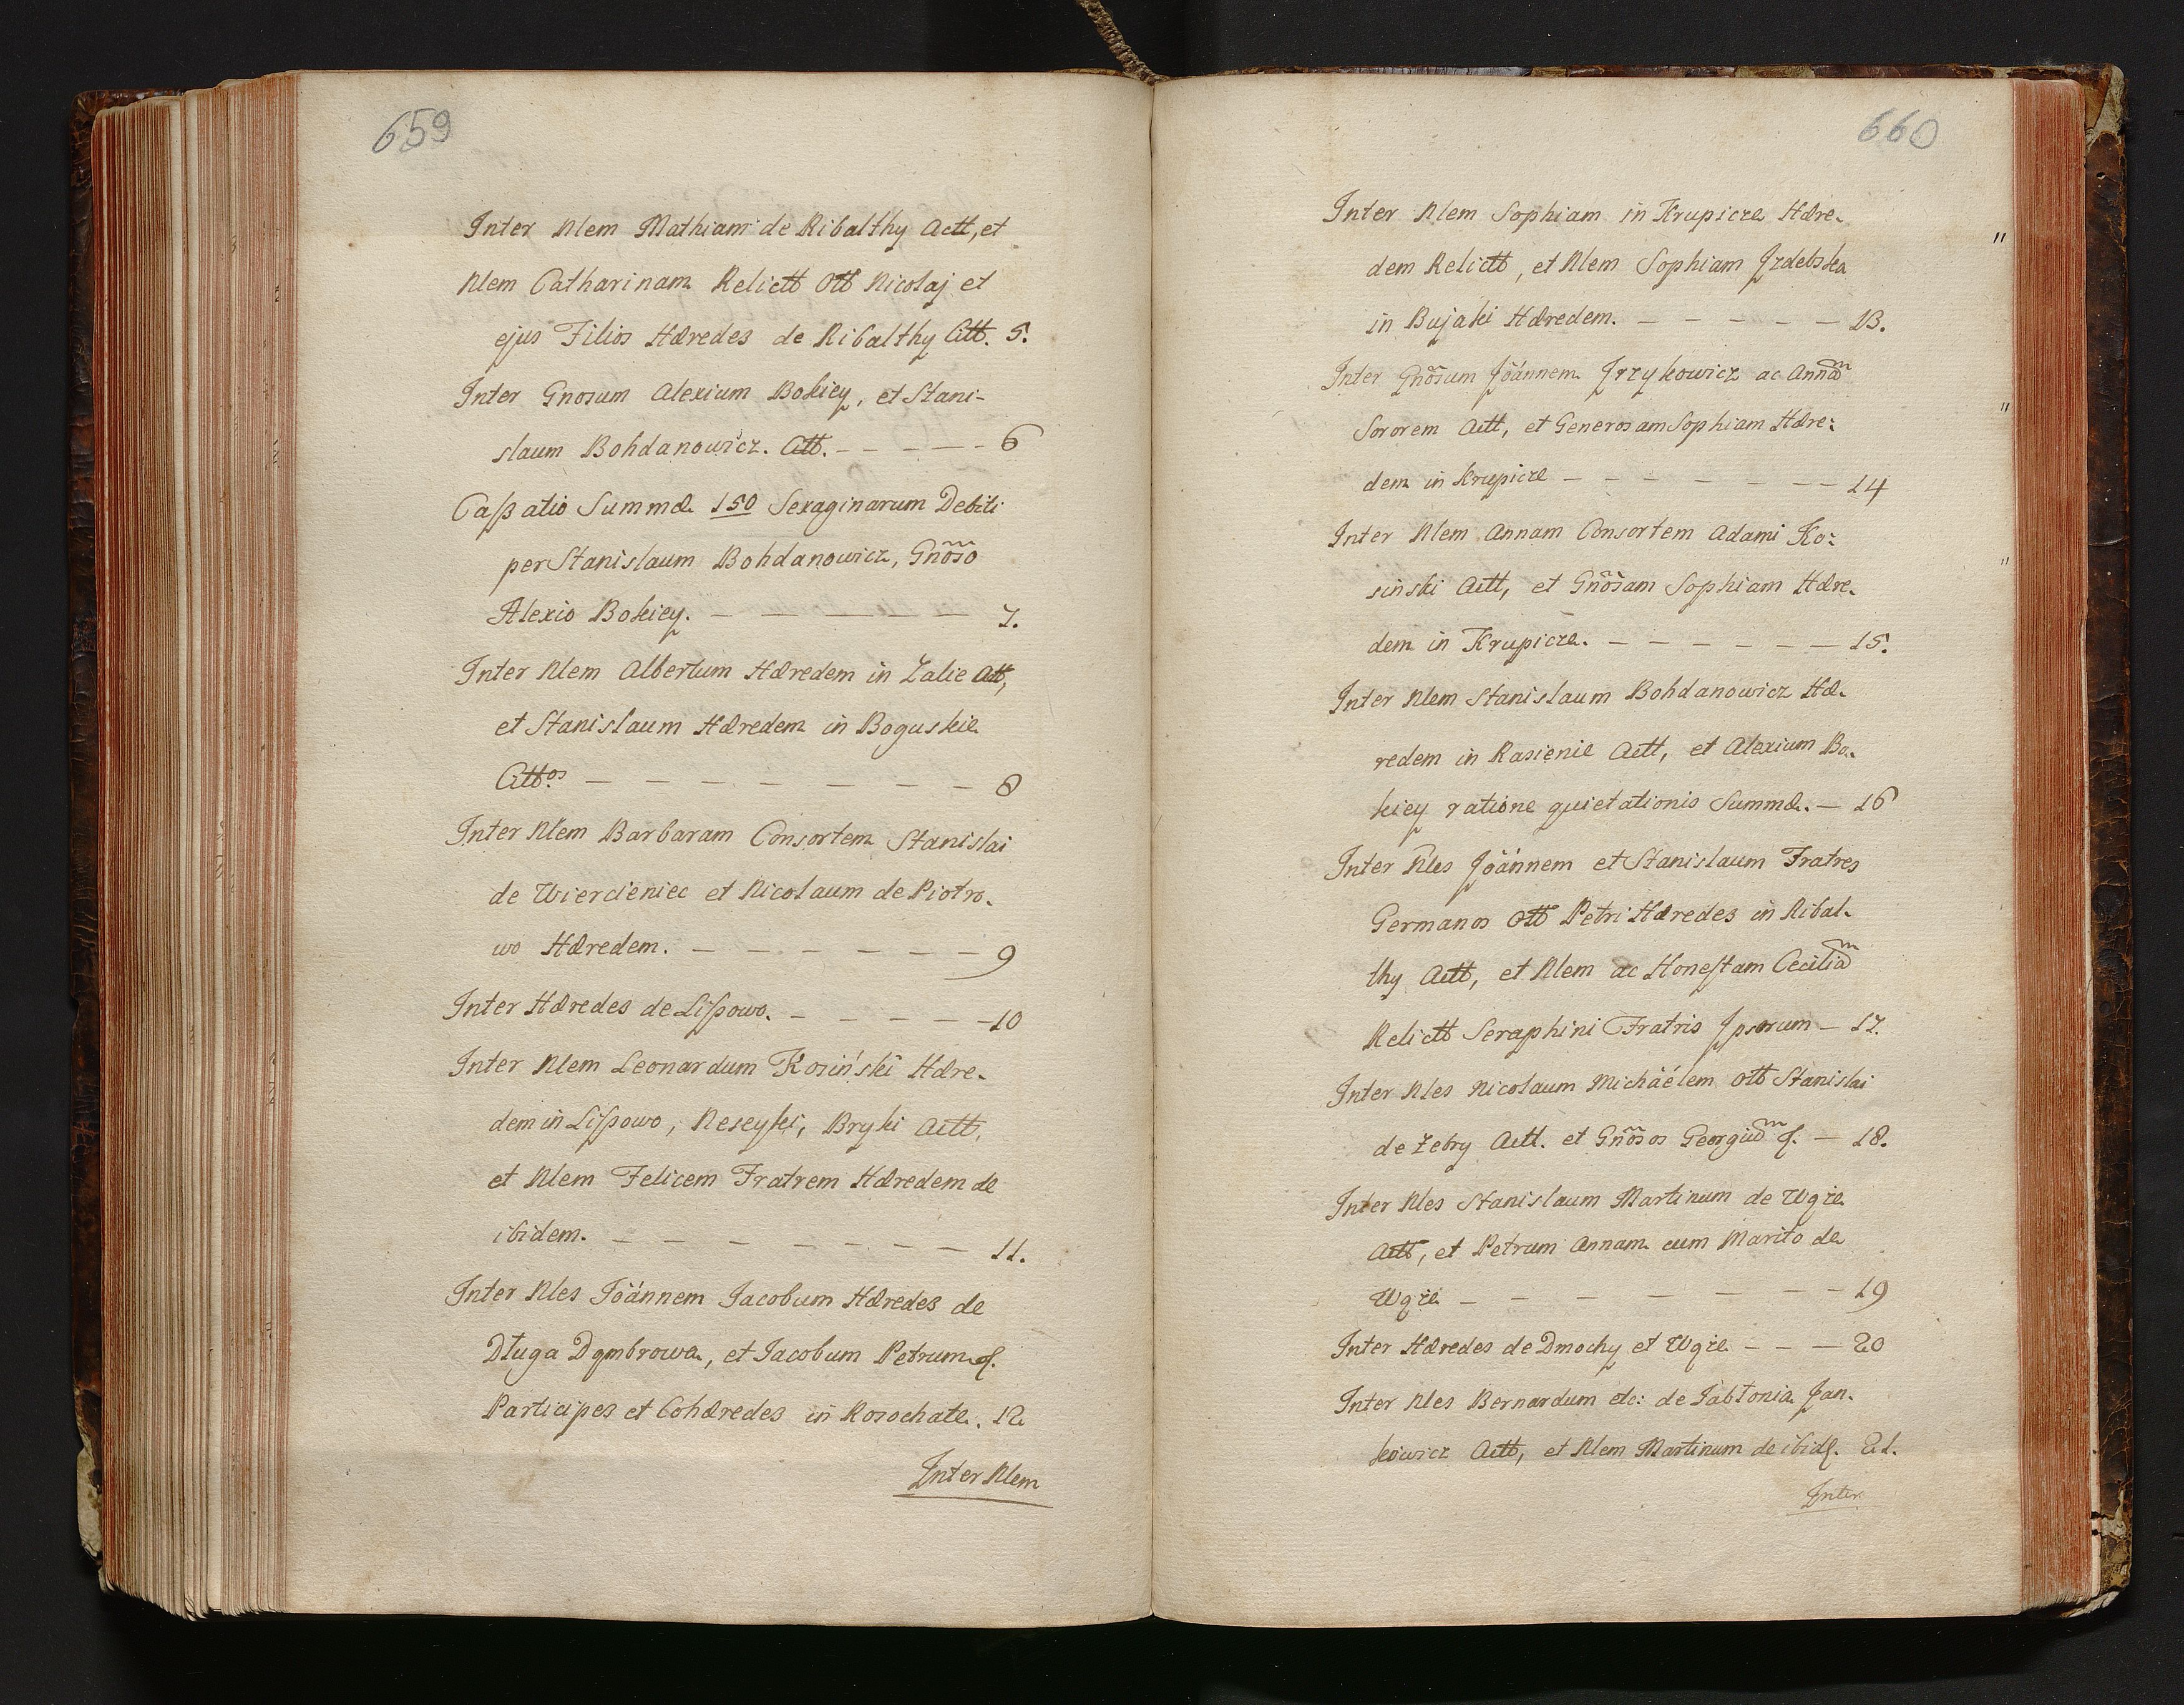 659
Inter Nlem Mathiam de Ribalthy Actt, et
Nlem Catharinam Relictt Ott Nicolaj et
ejus Filios Hæredes de Ribalthy Citt. 5.
Inter Gnosum Alexium Bokiey, et Stani-
slaum Bohdanowicz. Citt. - - - - - 6
Caßatio Summæ 150 Sexaginarum Debiti
per Stanislaum Bohdanowicz, Gnõso
Alexio Bokiey. - - - - - 7.
Inter Nlem Albertum Hæredem in Zalie Actt,
et Stanislaum Hæredem in Boguskie
Cittos - - - - - - - 8
Inter Nlem Barbaram Consortem Stanislai
de Wiercieniec et Nicolaum de Piotro-
wo Hæredem. - - - - - - 9
Inter Hæredes de Lißowo. - - - - - 10
Inter Nlem Leonardum Kosiński Hære-
dem in Lißowo, Reseyki, Bryki Actt,
et Nlem Felicem Fratrem Hæredem de
ibidem. - - - - - - - 11.
Inter Nles Joännem Jacobum Hæredes de
Długa Dąmbrowa, et Jacobum Petrum
Participes et Cohæredes in Rosochate. 12
Inter Nlem
660
Inter Nlem Sophiam in Krupicze Hære-
dem Relictt, et Nlem Sophiam Jzdebska
in Bujaki Hæredem. - - - - - 13.
Inter Gnõsum Joännem Jrzykowicz ac Annam
Sororem Actt, et Generosam Sophiam Hære:
dem in Krupice - - - - - - - 14
Inter Nlem Annam Consortem Adami Ko:
sinski Actt, et Gnõsam Sophiam Hære-
dem in Krupicze. - - - - - - 15.
Inter Nlem Stanislaum Bohdanowicz Hæ-
redem in Kasienie Actt, et Alexium Bo-
kiey ratione quietationis Summæ. - 16
Inter Nles Joännem et Stanislaum Fratres
Germanos Ott Petri Hæredes in Ribal-
thy Actt, et Nlem ac Honestam Ceciliam
Relictt Seraphini Fratris Jpsorum - 17.
Inter Nles Nicolaum Michäelem Ott Stanislai
de Zebry Actt. et Gnõsos Georgium - 18.
Inter Nles Stanislaum Martinum de Wąże
Actt, et Petrum Annam cum Marito de
Wąże - - - - - - - 19
Inter Hæredes de Dmochy et Wąże - - - 20
Inter Nles Bernardum etc: de Jabłonia Jan-
kowicz Actt, et Nlem Martinum de ibid. 21.
Inter